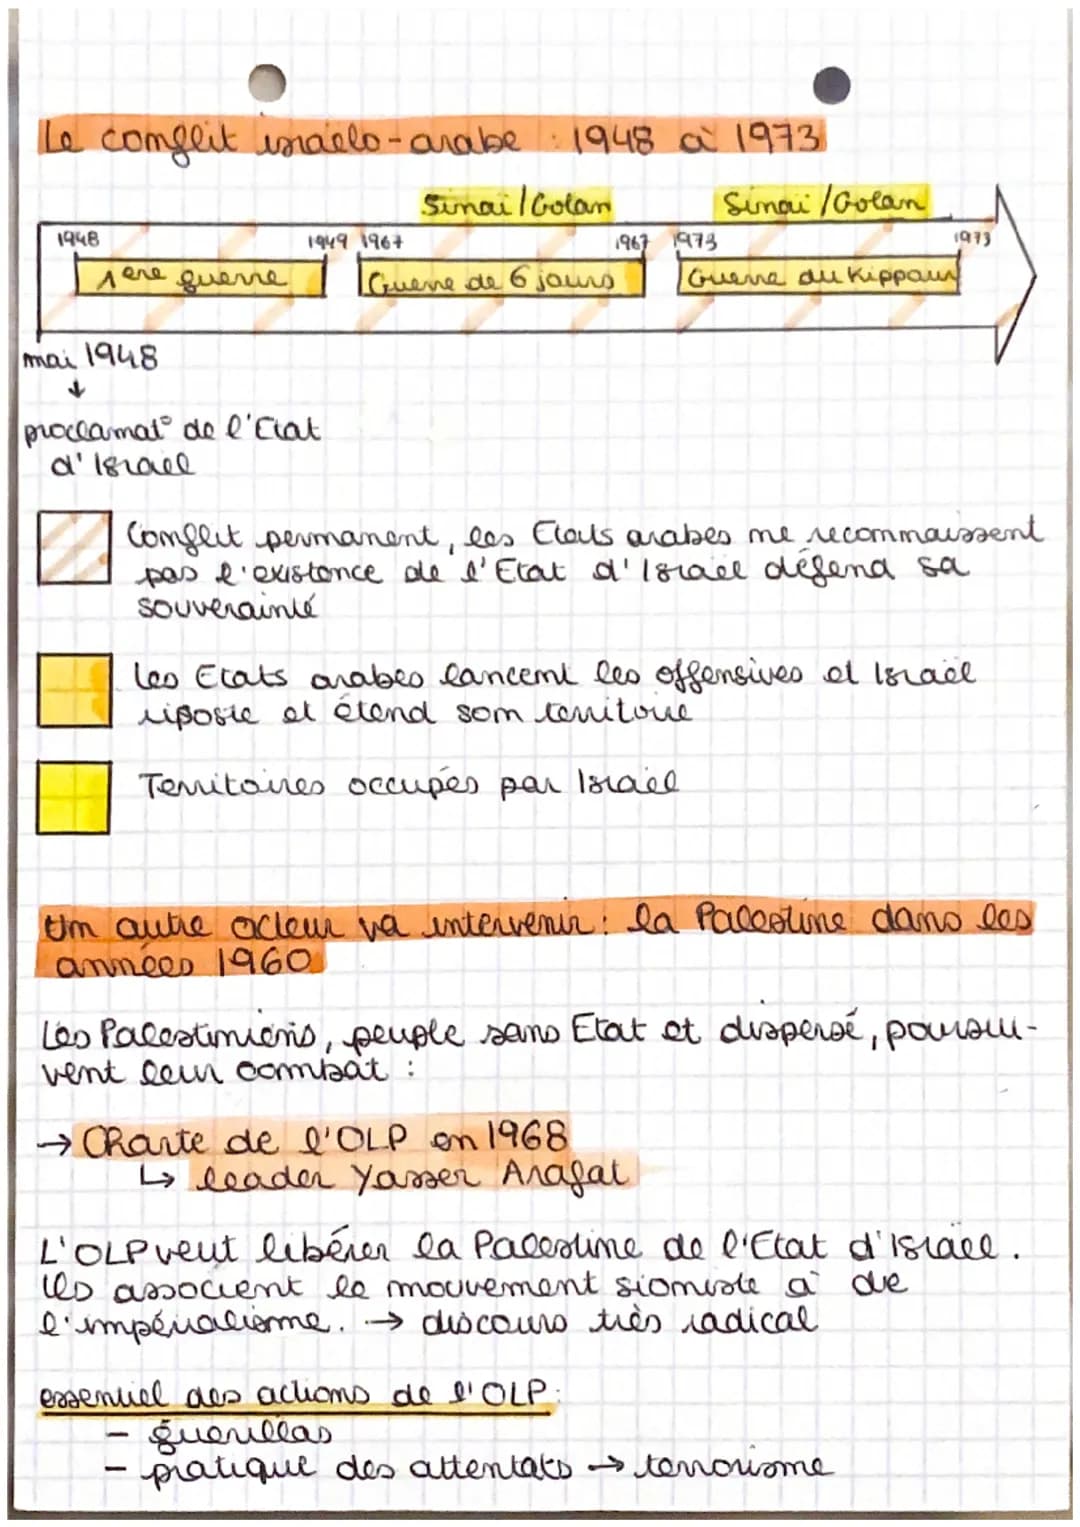 Le conflit israélo-arabe : 1948 à 1973
Sinaï/Golan Sinaï/Golan
1948 1949 1967 1967 1973 1973
1ère guerre Guerre de 6 jours Guerre du Kippour
mai 1948
↓
proclamat° de l'Etat
d'Israël
Conflit permanent, les Etats arabes ne reconnaissent
pas l'existence de l'Etat d'Israël défend sa
souverainté
Les Etats arabes lancent les offensives et Israël
riposte et étend son territoire
Territoires occupés par Israël
Un autre acteur va intervenir : la Palestine dans les
années 1960
Les Palestiniens, peuple sans Etat et dispersé, poursui-
vent leur combat :
→ Charte de l'OLP en 1968
↳ leader Yasser Arafat
L'OLP veut libérer la Palestine de l'Etat d'Israël.
Ils associent le mouvement sioniste à de
l'impérialisme. → discours très radical
essentiel des actions de l'OLP :
- guerillas
- pratique des attentats → terrorisme